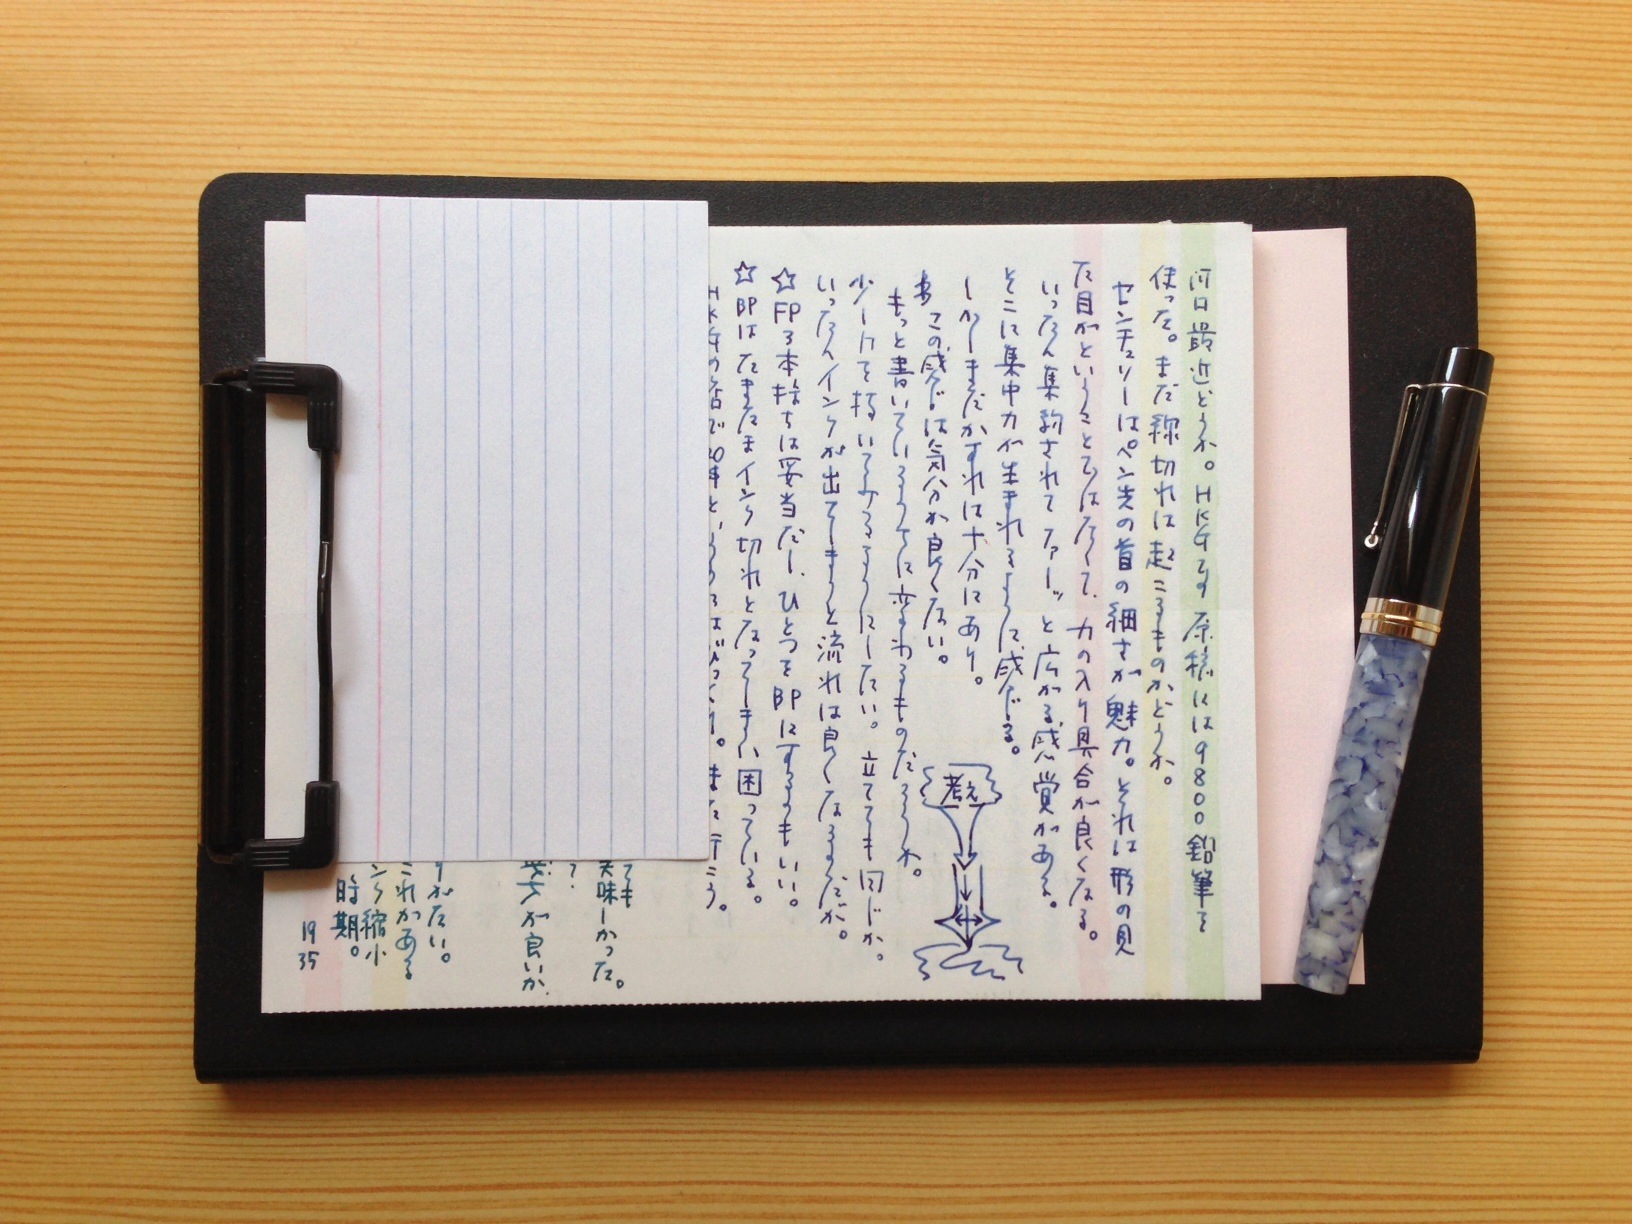 河口最近どうか。HKGでの原稿には9800鉛筆を
使った。まだ線切れは起こるものかどうか。
センチュリーはペン先の首の細さが魅力。それは形の見
た目がということではなくて、力の入り具合が良くなる。
いったん集約されてファーッと広がる感覚がある。
そこに集中力が生まれるように感じる。
しかしまだかすれは十分にあり。
この感じは気分が良くない。
もっと書いているうちに変わるものだろうか。
少し を いてみるようにしたい。立てても同じか。
いったんインクが出てしまうと流れは良くなるようだが。
☆FP3本持ちは妥当だし、ひとつをBPにするのもいい。
☆BPはたまたまインク切れとなってしまい困っている。
の店で という 。また行こう。
ても
美味しかった。
?
が良いか
がたい。
これがある
ンク縮小
時期。
19
35
考え